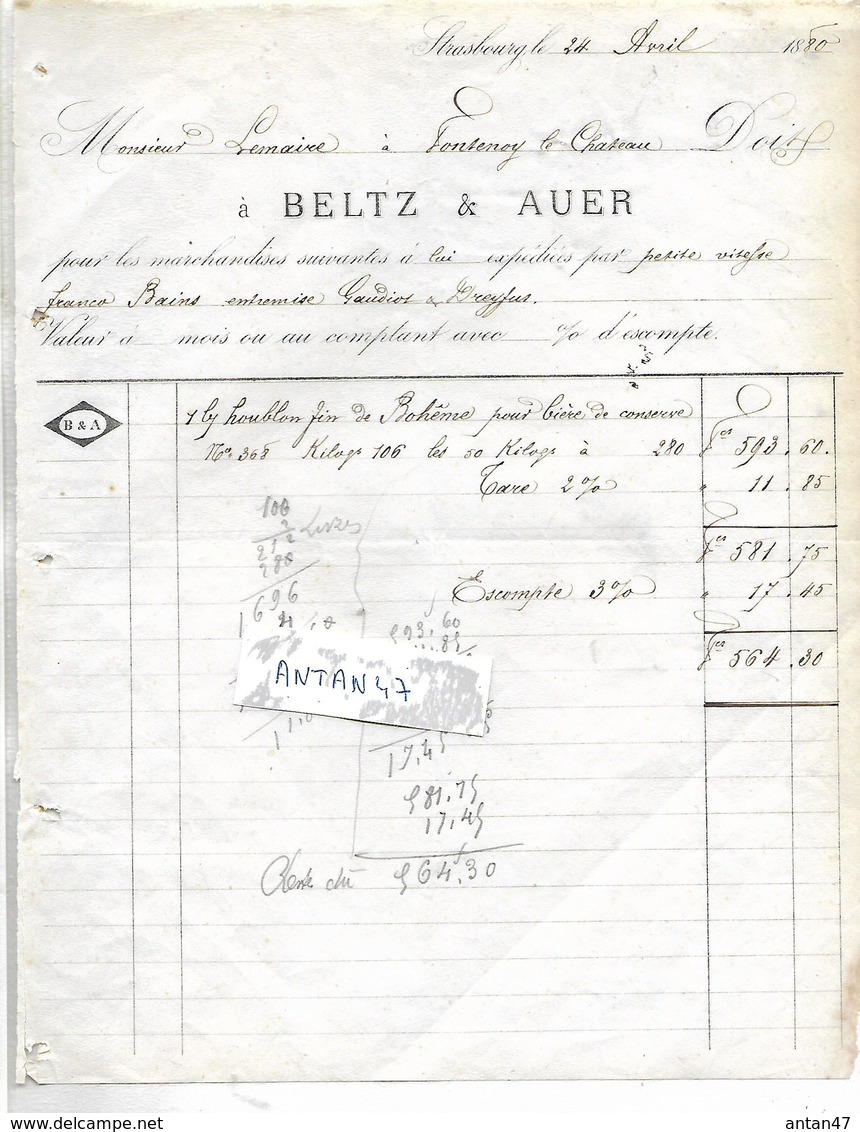 Strasbourg le 24 Avril 1880
Monsieur Lemaire à Fontenoy le Chateau Doit
à BELTZ & AUER
pour les marchandises suivantes à lui expédiées par petite vitesse
franco Bains entremise Gaudiot & Dreyfus.
Valeur à mois ou au comptant avec % d'escompte.
B & A
1 bl houblon fin de Bohême pour bière de conserve
No. 368 Kilogs 106 les 50 Kilogs à 280 fcs 593.60.
Tare 2% " 11.85
fcs 581.75
Escompte 3% " 17.45
fcs 564.30
106
2 Livres
212
280
1696
593.60
ANTAN47
17,45
581.75
17,45
Reste dû 564.30
antan47